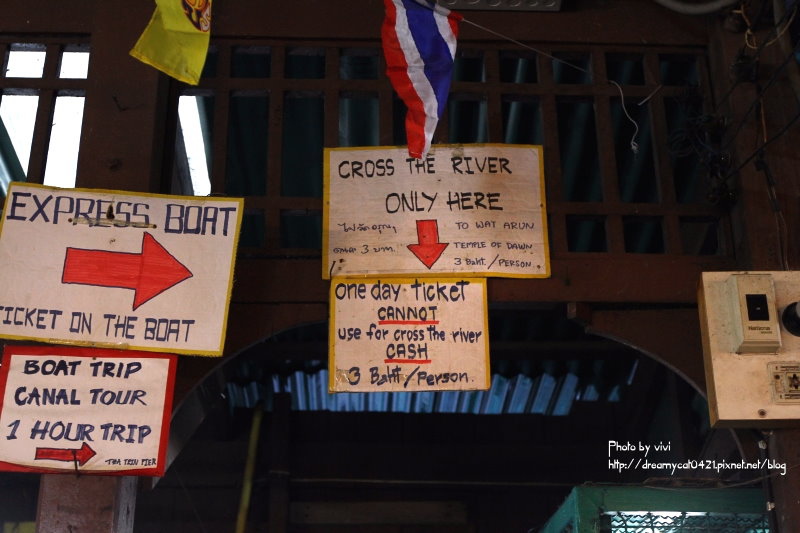 CROSS THE RIVER
ONLY HERE
ไปวัดอรุณฯ
3 บาท
TO WAT ARUN
TEMPLE OF DAWN
3 Baht./PERSON
EXPRESS BOAT
TICKET ON THE BOAT
one day ticket
CANNOT
use for cross the river
CASH
3 Baht/Person.
BOAT TRIP
CANAL TOUR
1 HOUR TRIP
THA TIEN PIER
National
Photo by vivi
http://dreamycat0421.pixnet.net/blog